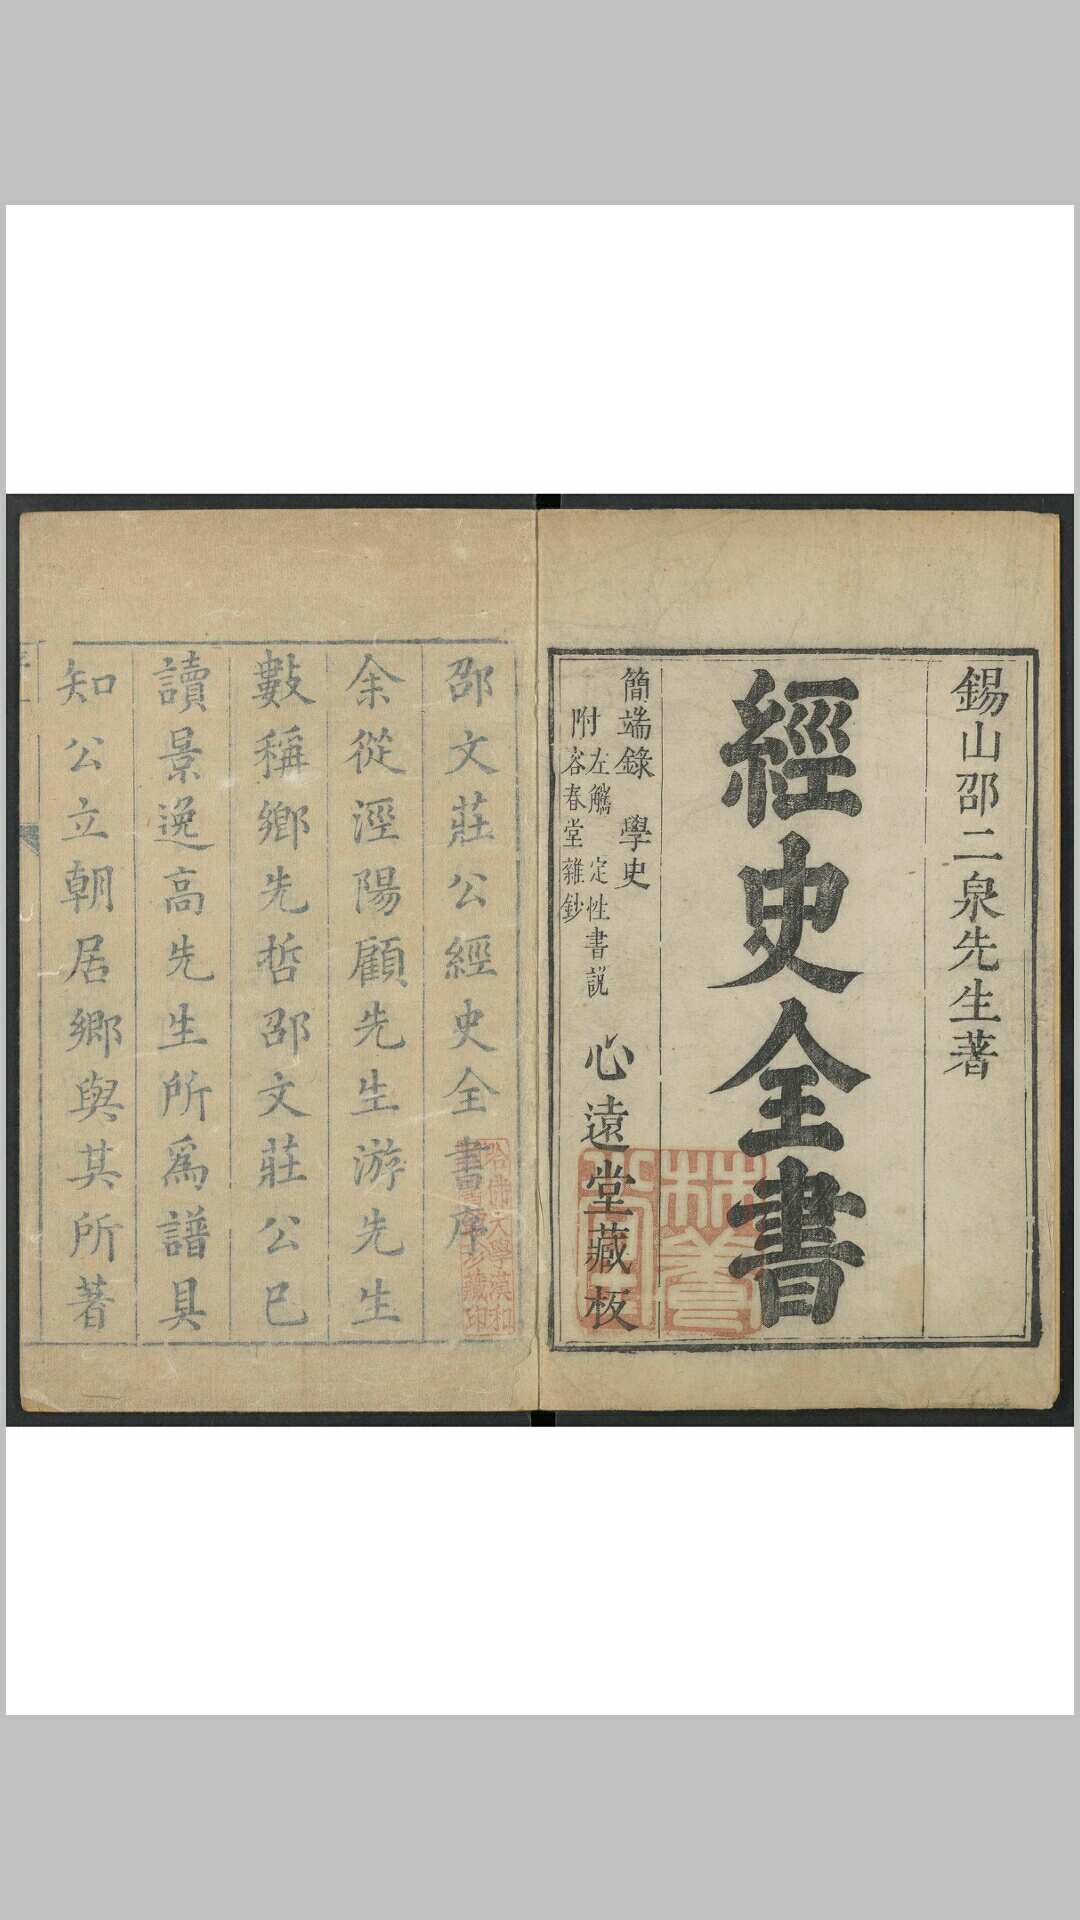 錫山邵二泉先生著
經史全書
簡端錄 學史
附 左觿 定性書說
容春堂雜鈔
心遠堂藏板
邵文莊公經史全書序
余從涇陽顧先生游先生
數稱鄉先哲邵文莊公已
讀景逸高先生所爲譜具
知公立朝居鄉與其所著
哈佛大學漢和
圖書館珍藏印